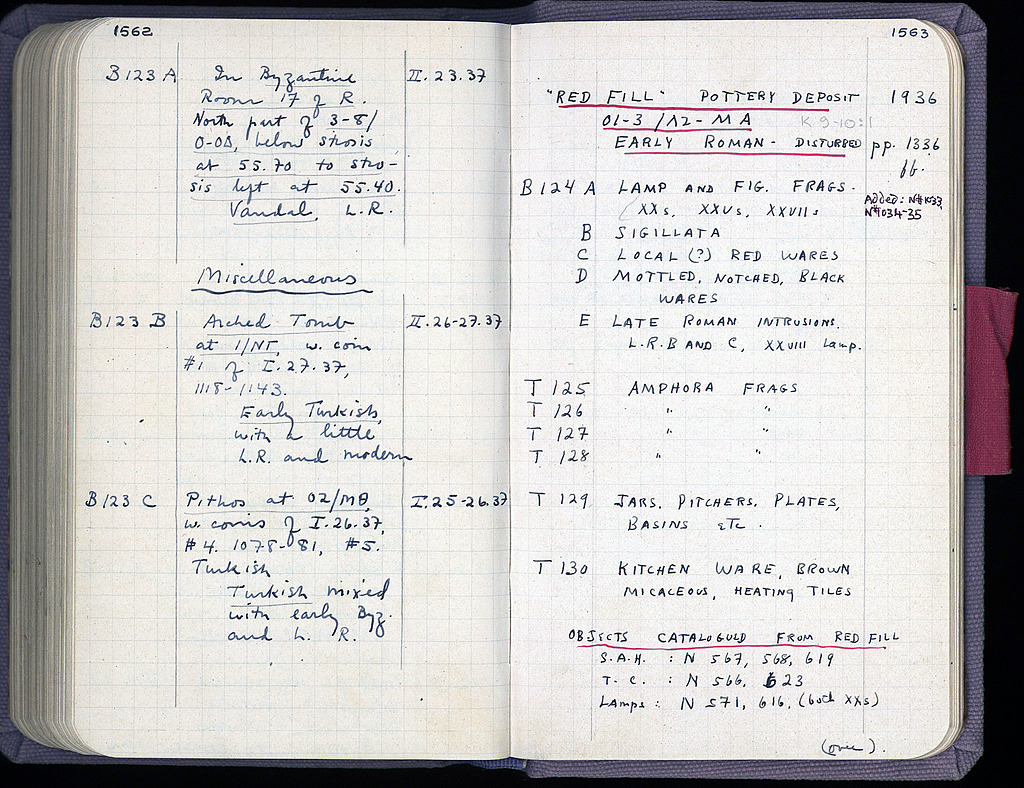 1562
B123 A In Byzantine II.23.37
Room 17 of R.
North part of 3-8/
O-OΔ, below strosis
at 55.70 to stro-
sis left at 55.40.
Vandal, L.R.
Miscellaneous
B123 B Arched Tomb II.26-27.37
at 1/NΓ, w. coin
#1 of I.27.37,
1118-1143.
Early Turkish,
with a little
L.R. and modern
B123 C Pithos at 02/MΘ, I.25-26.37
w. coins of I.26.37,
#4. 1078-81, #5.
Turkish
Turkish mixed
with early Byz.
and L. R.
1563
"RED FILL" POTTERY DEPOSIT 1936
01-3/Λ2-MA K 9-10:1
EARLY ROMAN- DISTURBED pp. 1336
ff.
B124 A LAMP AND FIG. FRAGS. Added: N#1033
XXs, XXVs, XXVIIs N#1034-35
B SIGILLATA
C LOCAL (?) RED WARES
D MOTTLED, NOTCHED, BLACK
WARES
E LATE ROMAN INTRUSIONS.
L.R. B AND C, XXVIII Lamp.
T 125 AMPHORA FRAGS
T 126 " "
T 127 " "
T 128 " "
T 129 JARS, PITCHERS, PLATES,
BASINS ETC.
T 130 KITCHEN WARE, BROWN
MICACEOUS, HEATING TILES
OBJECTS CATALOGUED FROM RED FILL
S.A.H. : N 567, 568, 619
T. C. : N 566, 623
Lamps : N 571, 616, (both XXs)
(over).